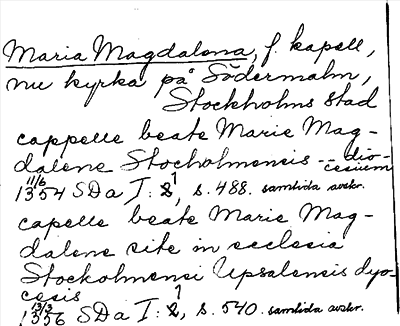 Maria Magdalena, f. kapell,
nu kyrka på Södermalm,
Stockholms stad
cappelle beate Marie Mag-
dalene Stocholmensis -- dio-
cesium
11/6 1354 SDa I:1, s. 488. samtida avskr.
capelle beate Marie Mag-
dalene site in ecclesia
Stockolmensi Upsalensis dyo-
cesis
13/3 1356 SDa I:1, s. 540. samtida avskr.